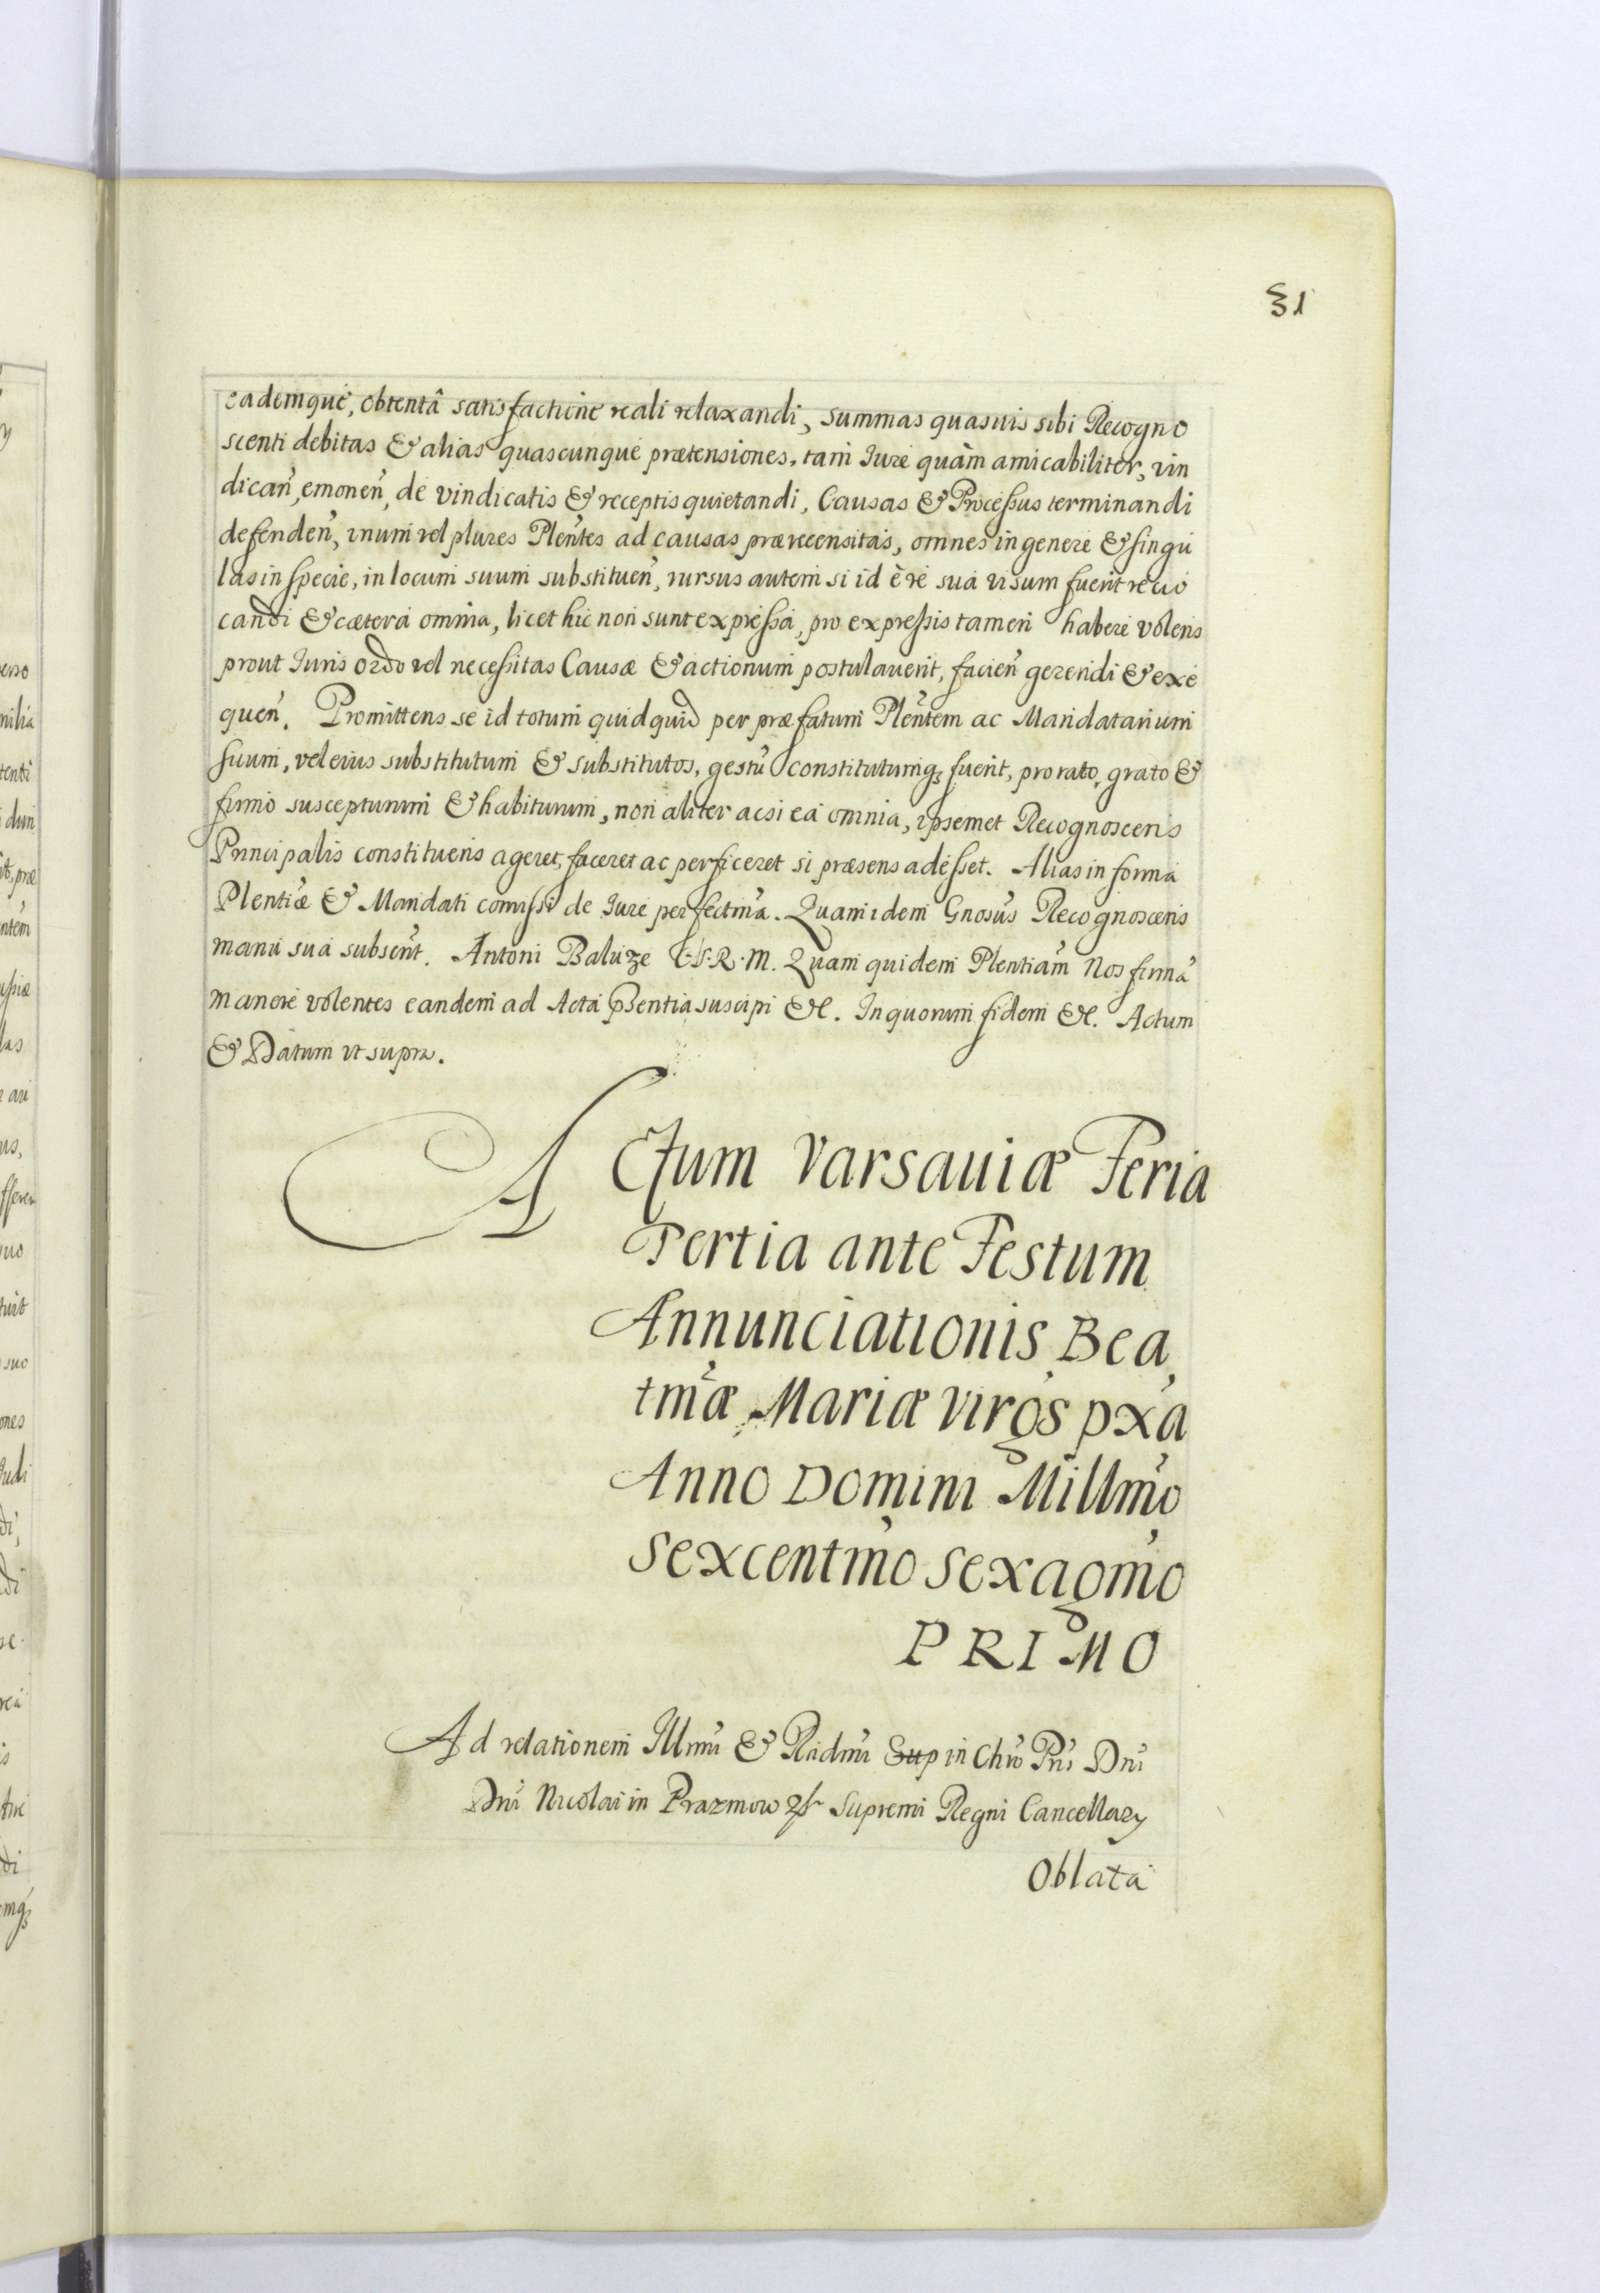 31
eademque, obtentâ satisfactione reali relaxandi, summas quasuis sibi Recogno
scenti debitas & alias quascunque prætensiones, tam Jure quàm amicabiliter, vin
dican̄, emonen̄, de vindicatis & receptis quietandi, Causas & Processus terminandi
defenden̄, unum vel plures Pleñtes ad causas præreecensitas, omnes in genere & singu
las in specie, in locum suum substituen̄, rursus autem si id è re sua visum fuerit revo
candi & cætera omnia, licet hic non sunt expressa, pro expressis tamen habere volens
prout Juris ordo vel necessitas Causæ & actionum postulaverit, facien̄ gerendi & exe
quen̄. Promittens se id totum quidquid per præfatum Pleñtem ac Mandatarium
suum, vel eius substitutum & substitutos, gestū constitutumq; fuerit, pro rato, grato &
firmo suscepturum & habiturum, non aliter ac si ea omnia, ipsemet Recognoscens
Principalis constituens ageret, faceret ac perficeret si præsens adesset. Alias in forma
Plentiæ & Mandati comissi de Jure perfectm̄a. Quam idem Gnosūs Recognoscens
manu sua subscr̄t. Antoni Baluze S.R.M. Quam quidem Plentiam̄ Nos firmā
manere volentes eandem ad Acta p̄sentia suscipi &c. In quorum fidem &c. Actum
& Datum ut supra.
ACtum Varsaviæ Feria
Tertia ante Festum
Annunciationis Bea
tm̄æ Mariæ Virgs̄ px̄a
Anno Domini Millmō
Sexcentmō Sexagmō
PRIMO
Ad relationem Illmī & Rndmī Sup in Chrō Pr̄i Dnī
Dnī Nicolai in Prazmow Supremi Regni Cancellary
Oblata